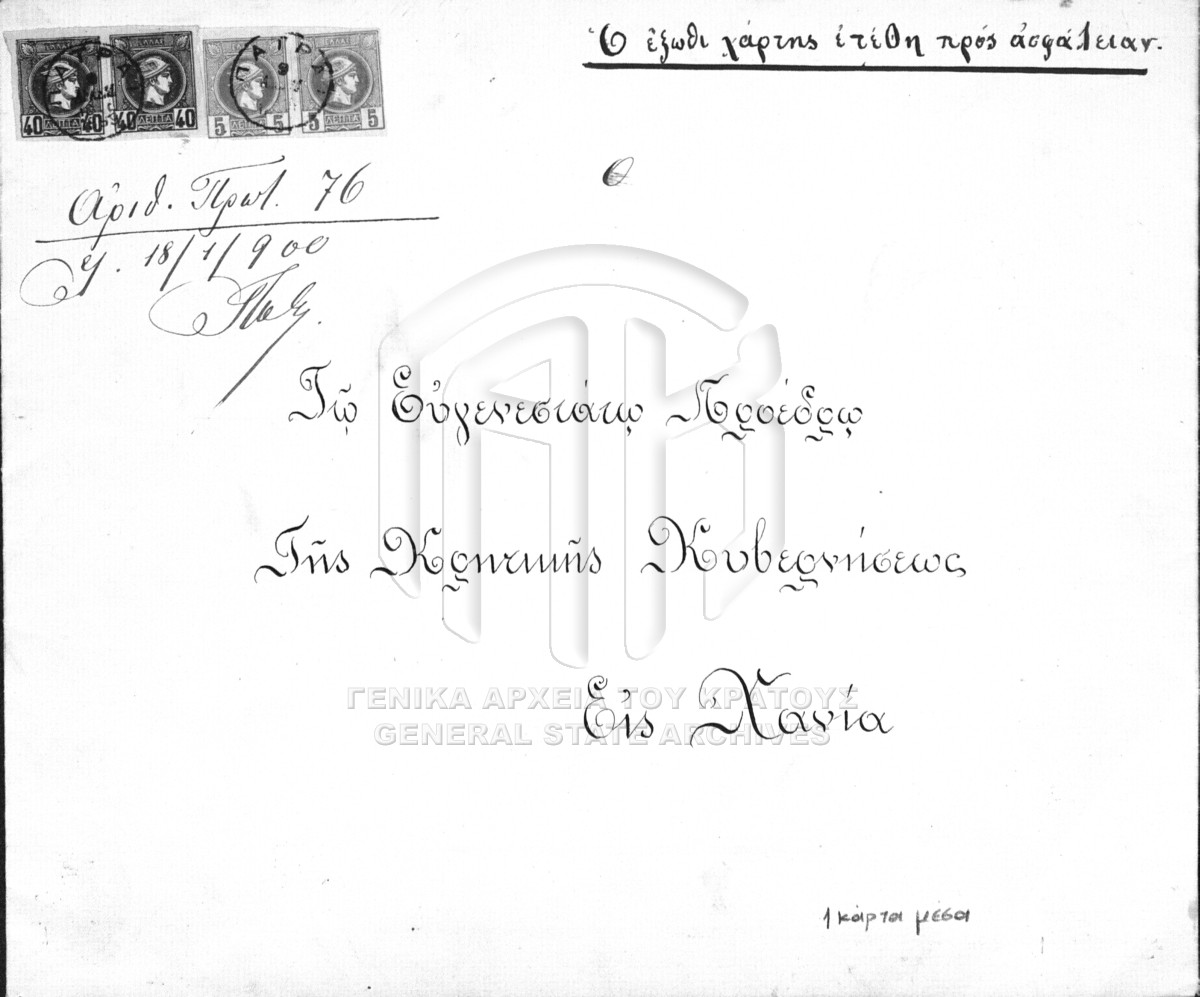 Ὁ ἔξωθι χάρτης ἐτέθη πρός ἀσφάλειαν.
ΕΛΛΑΣ ΕΛΛΑΣ ΕΛΛΑΣ ΕΛΛΑΣ
40 ΛΕΠΤΑ 40 40 ΛΕΠΤΑ 40 5 ΛΕΠΤΑ 5 5 ΛΕΠΤΑ 5
Ἀριθ. Πρωτ. 76
18/1/900
Τῷ Εὐγενεστάτῳ Προέδρῳ
Τῆς Κρητικῆς Κυβερνήσεως
Εἰς Χανία
ΓΕΝΙΚΑ ΑΡΧΕΙΑ ΤΟΥ ΚΡΑΤΟΥΣ
GENERAL STATE ARCHIVES
1 κάρτα μέσα